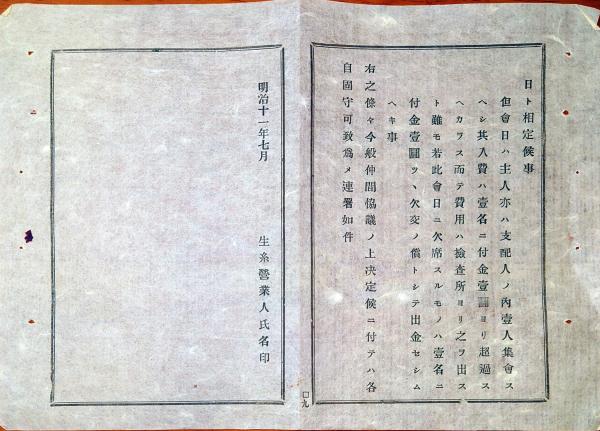 日ト相定候事
但會日ハ主人亦ハ支配人ノ內壹人集會ス
ヘシ其入費ハ壹名ニ付金壹圓ヨリ超過ス
ヘカラス而テ費用ハ撿查所ヨリ之ヲ出ス
ト雖モ若此會日ニ欠席スルモノハ壹名ニ
付金壹圓ツヽ欠交ノ償トシテ出金セシム
ヘキ事
右之條々今般仲間恊議ノ上决定候ニ付テハ各
自固守可致爲メ連署如件
明治十一年七月
生糸營業人氏名印
□九